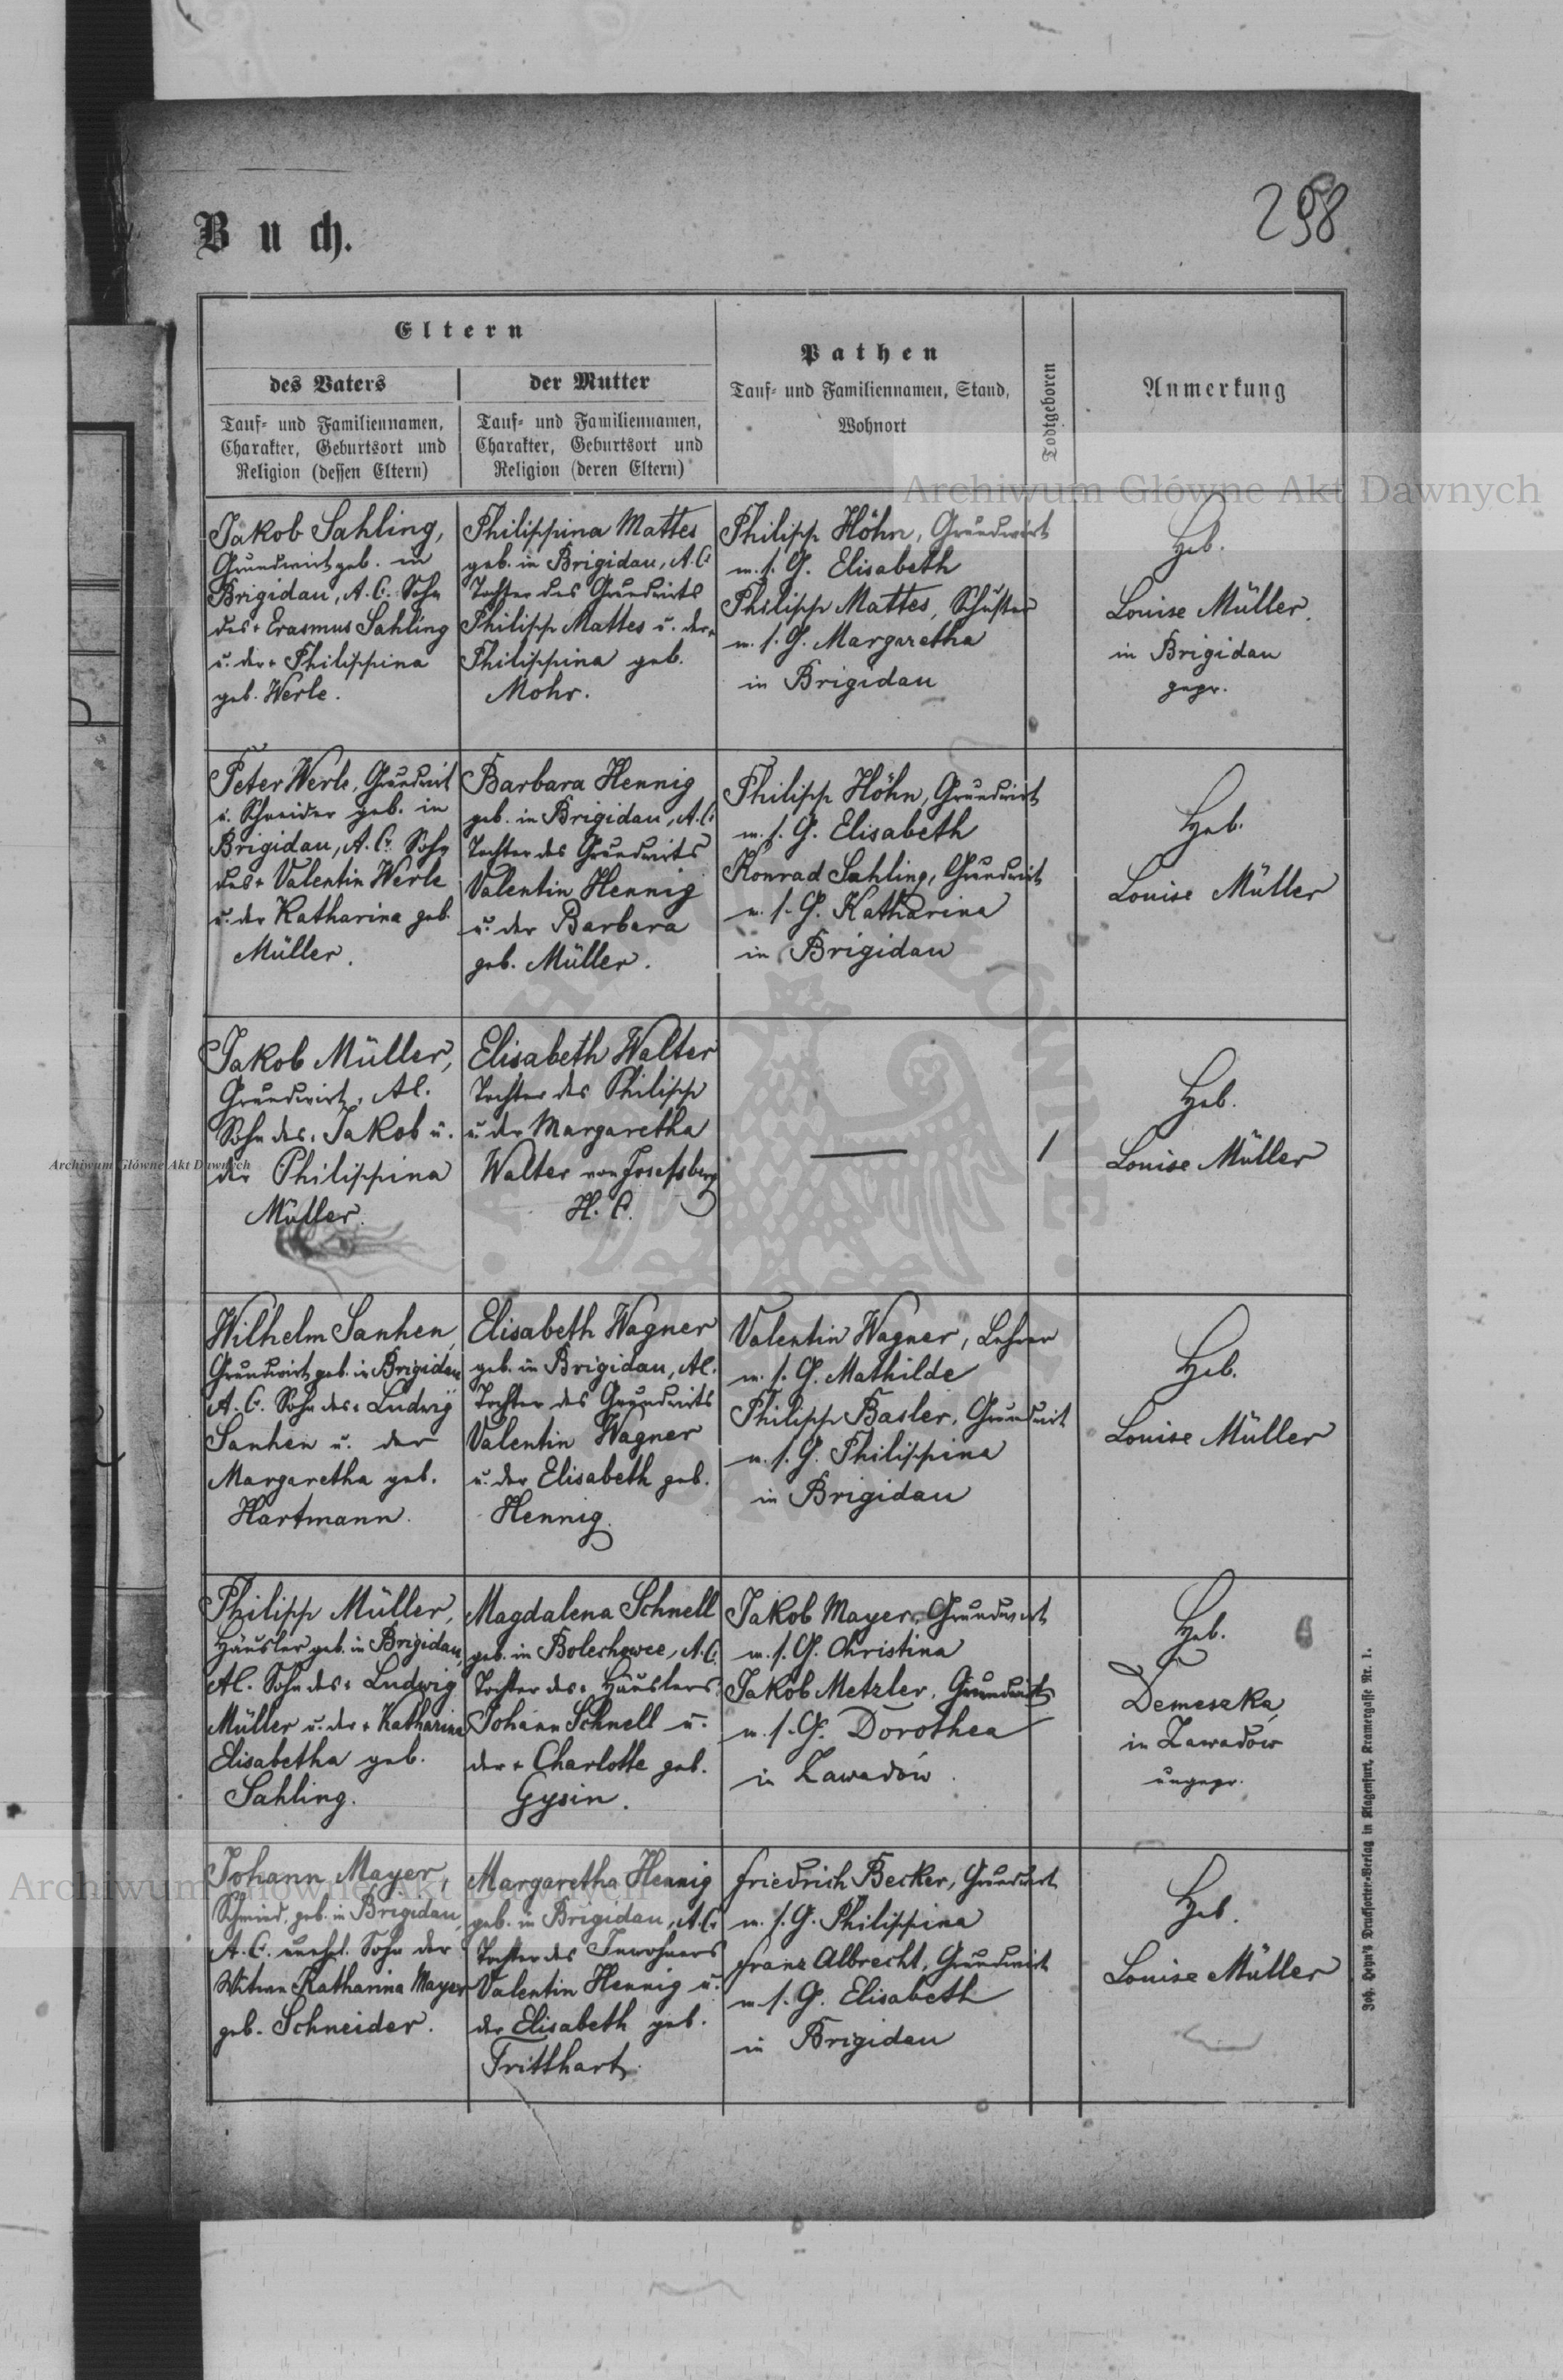 298
Buch.
Eltern
des Vaters
Tauf- und Familiennamen,
Charakter, Geburtsort und
Religion (dessen Eltern)
der Mutter
Tauf- und Familiennamen,
Charakter, Geburtsort und
Religion (deren Eltern)
Pathen
Tauf- und Familiennamen, Stand,
Wohnort
Todtgeboren
Anmerkung
Archiwum Główne Akt Dawnych
Jakob Sahling,
Grundwirt geb. in
Brigidau, A.C. Sohn
des + Erasmus Sahling
u. der + Philippina
geb. Werle.
Philippina Mattes
geb. in Brigidau, A.C.
Tochter des Grundwirts
Philipp Mattes u. der +
Philippina geb.
Mohr.
Philipp Höhn, Grundwirt
m. s. G. Elisabeth
Philipp Mattes, Schuster
m. s. G. Margaretha
in Brigidau
Heb.
Louise Müller,
in Brigidau
gepr.
Peter Werle, Grundwirt
u. Schneider geb. in
Brigidau, A.C. Sohn
des + Valentin Werle
u. der Katharina geb.
Müller.
Barbara Hennig
geb. in Brigidau, A.C.
Tochter des Grundwirts
Valentin Hennig
u. der Barbara
geb. Müller.
Philipp Höhn, Grundwirt
m. s. G. Elisabeth
Konrad Sahling, Grundwirt
m. s. G. Katharina
in Brigidau
Heb.
Louise Müller
Jakob Müller,
Grundwirt, AC.
Sohn des Jakob u.
der Philippina
Müller.
Elisabeth Walter
Tochter des Philipp
u. der Margaretha
Walter von Josefsberg
H. C.
—
/
Heb.
Louise Müller
Archiwum Główne Akt Dawnych
Wilhelm Sanhen,
Grundwirt geb. in Brigidau
A.C. Sohn des + Ludwig
Sanhen u. der
Margaretha geb.
Hartmann.
Elisabeth Wagner
geb. in Brigidau, AC.
Tochter des Grundwirts
Valentin Wagner
u. der Elisabeth geb.
Hennig.
Valentin Wagner, Lehrer
m. s. G. Mathilde
Philipp Basler, Grundwirt
m. s. G. Philippina
in Brigidau
Heb.
Louise Müller
Philipp Müller,
Häusler geb. in Brigidau,
AC. Sohn des + Ludwig
Müller u. der + Katharina
Elisabetha geb.
Sahling.
Magdalena Schnell
geb. in Bolechowce, A.C.
Tochter des + Häuslers
Johann Schnell u.
der + Charlotte geb.
Gysin.
Jakob Mayer, Grundwirt
m. s. G. Christina
Jakob Metzler, Grundwirt
m. s. G. Dorothea
in Zawadów.
Heb.
Demeszka,
in Zawadów
ungepr.
Johann Mayer,
Schmied, geb. in Brigidau,
A.C. unehel. Sohn der
Witwe Katharina Mayer
geb. Schneider.
Margaretha Hennig
geb. in Brigidau, A.C.
Tochter des Inwohners
Valentin Hennig u.
der Elisabeth geb.
Tritthart.
Friedrich Becker, Grundwirt
m. s. G. Philippina
Franz Albrecht, Grundwirt
m. s. G. Elisabeth
in Brigidau
Heb.
Louise Müller
Archiwum Główne Akt Dawnych
Joh. Heyn's Drucksorten-Verlag in Klagenfurt, Kramergasse Nr. 1.